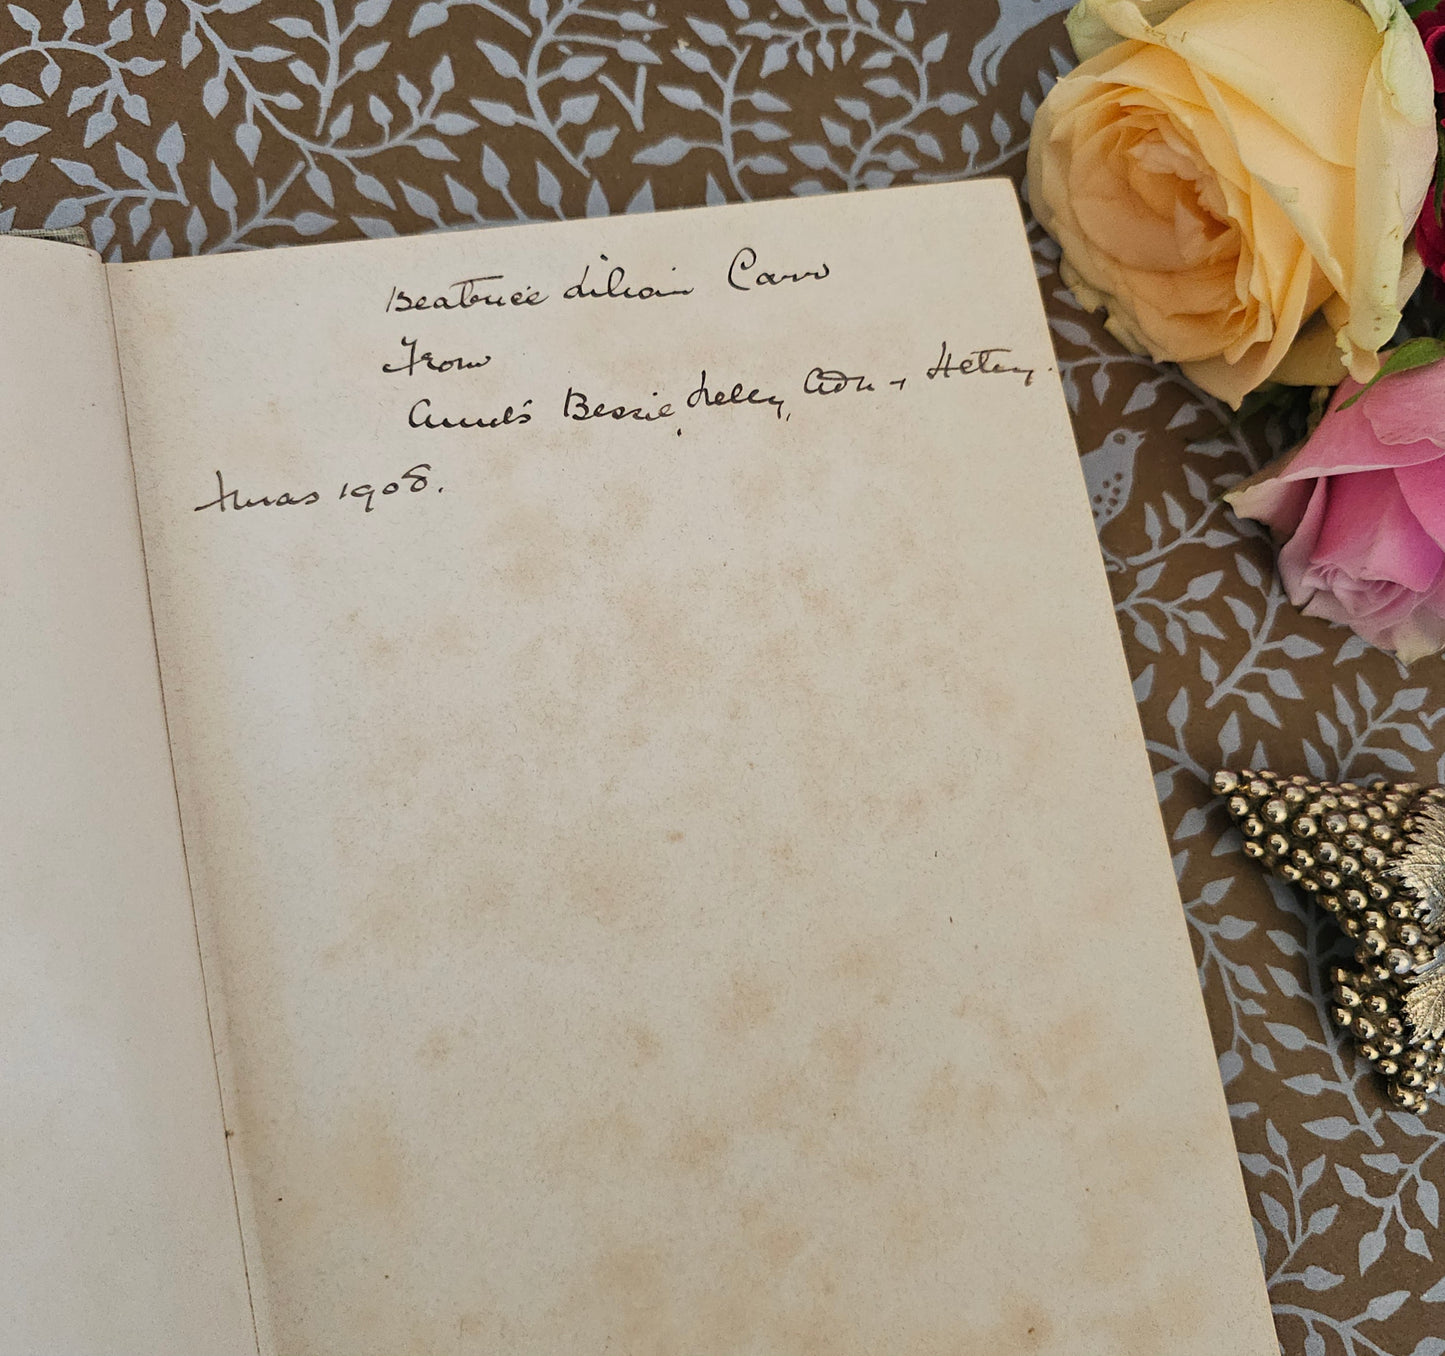 Beatrice Lilian Carr
From
Aunts Bessie, Nelly, Ada + Hetty.
Xmas 1908.